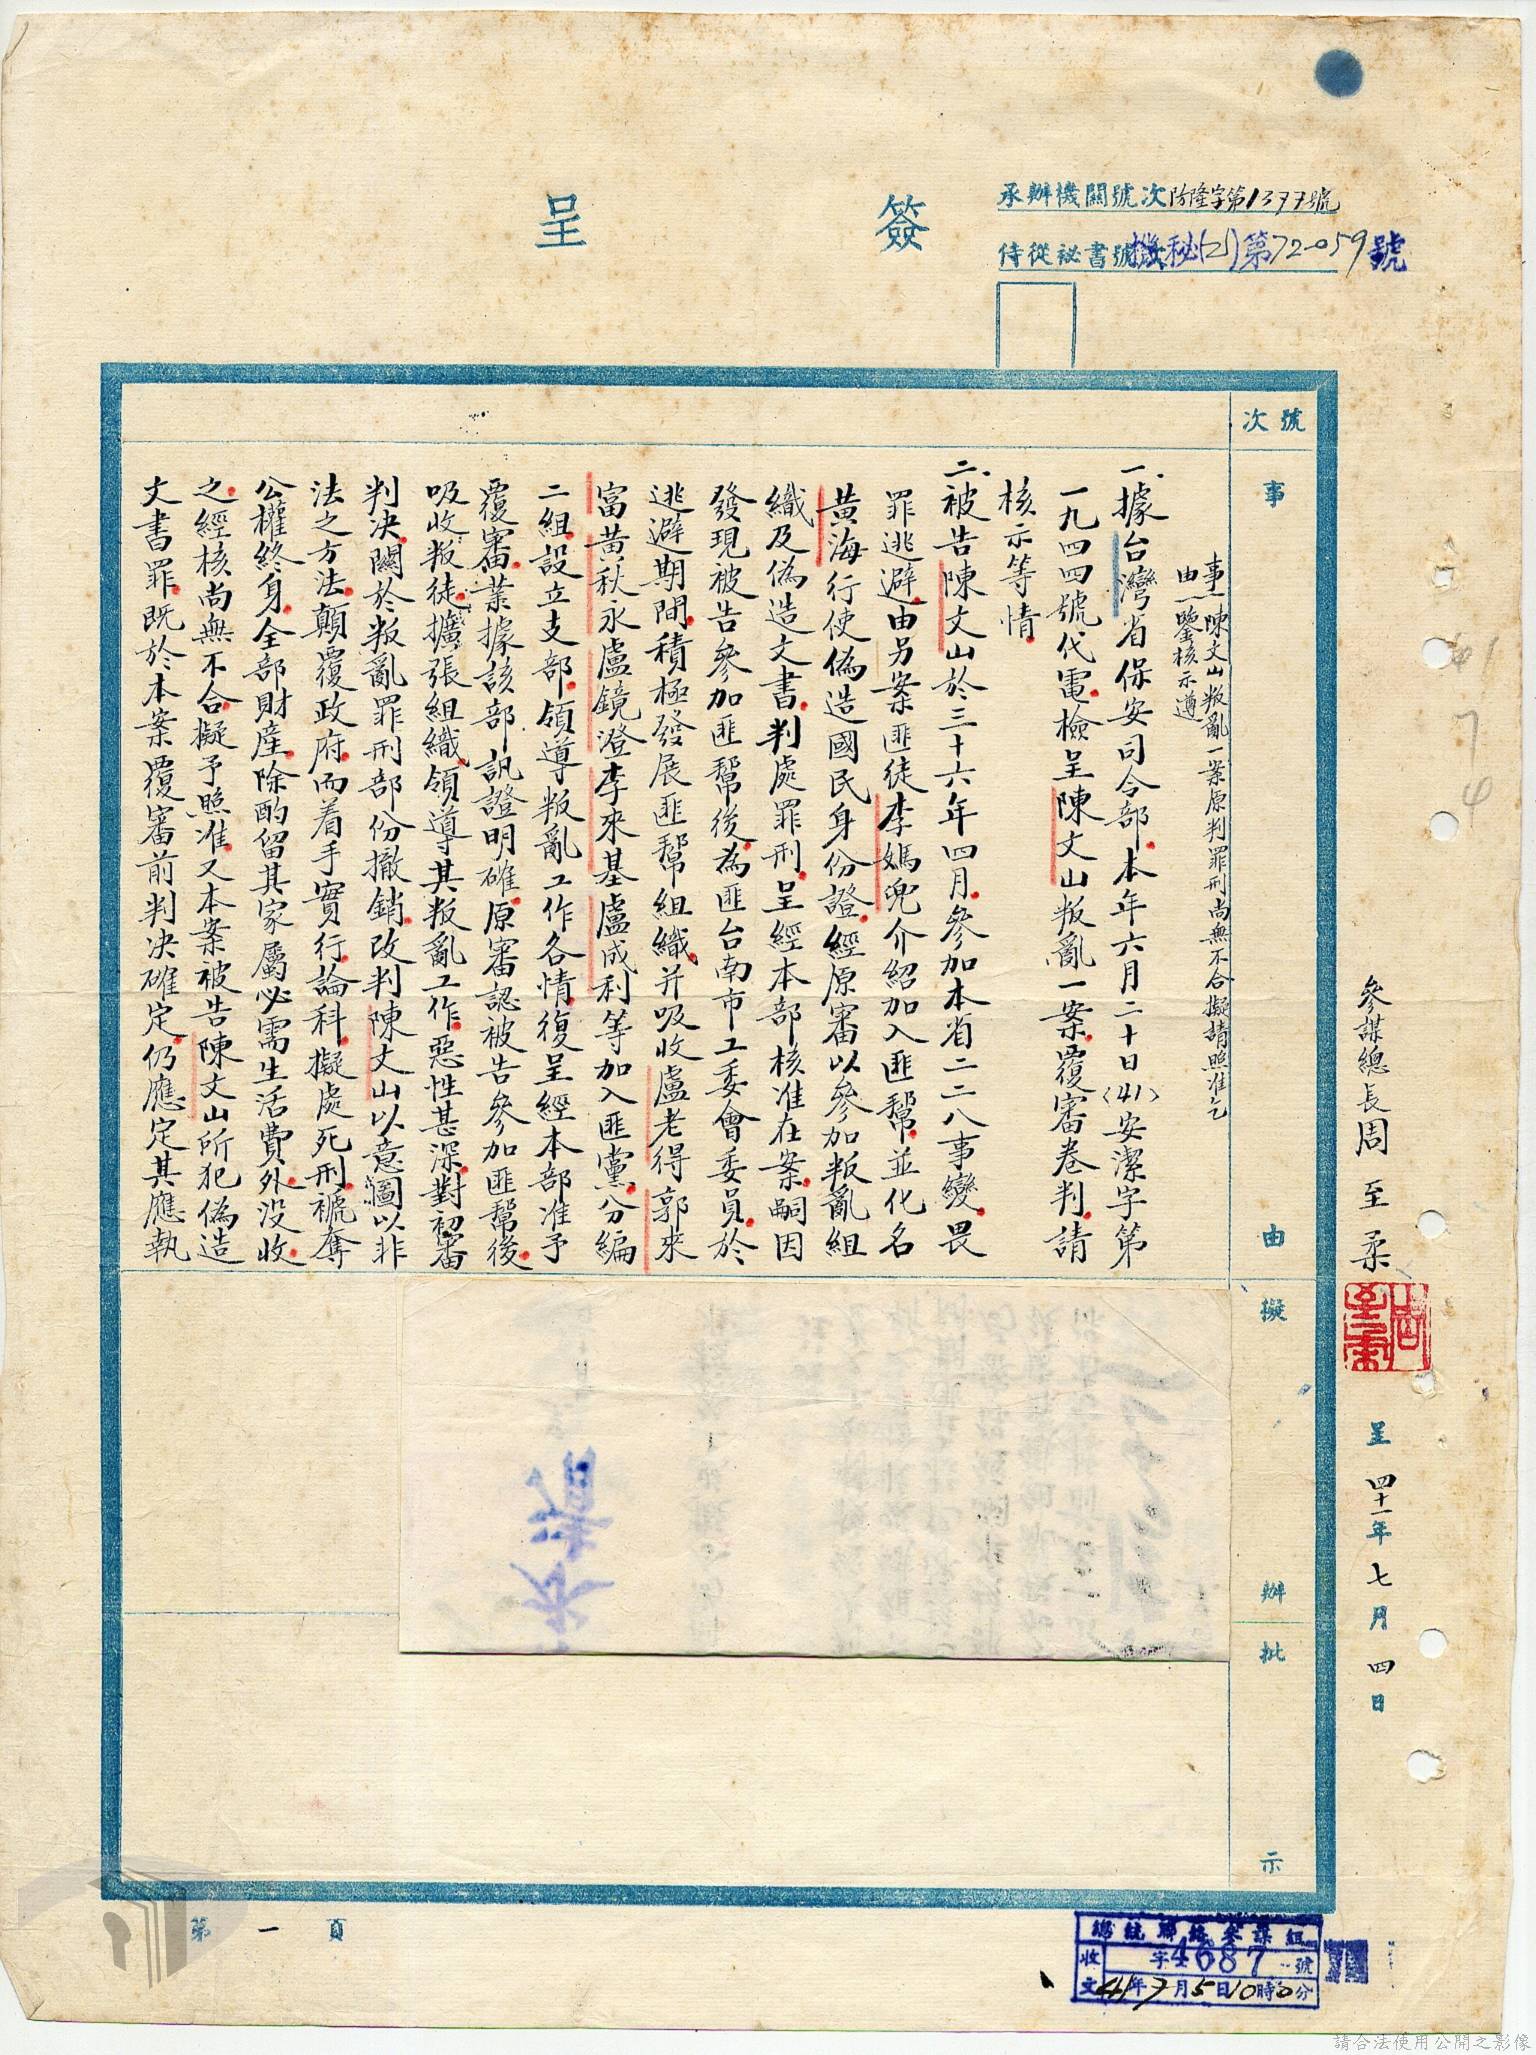 簽呈
承辦機關號次防隆字第1377號
侍從祕書號次機秘(21)第72059號
參謀總長周至柔
呈四十一年七月四日
號次
事由
擬辦
批示
事由:陳文山叛亂一案原判罪刑尚無不合擬請照准乞
鑒核示遵
一、據台灣省保安司令部本年六月二十日(41)安潔字第
一九四四號代電檢呈陳文山叛亂一案覆審卷判請
核示等情
二、被告陳文山於三十六年四月參加本省二二八事變畏
罪逃避由另案匪徒李媽兜介紹加入匪幫並化名
黃海行使偽造國民身份證經原審以參加叛亂組
織及偽造文書判處罪刑呈經本部核准在案嗣因
發現被告參加匪幫後為匪台南市工委會委員於
逃避期間積極發展匪幫組織并吸收盧老得郭來
富黃秋永盧鏡澄李來基盧成利等加入匪黨分編
二組設立支部領導叛亂工作各情復呈經本部准予
覆審茲據該部訊證明確原審認被告參加匪幫後
吸收叛徒擴張組織領導其叛亂工作惡性甚深對初審
判決關於叛亂罪刑部份撤銷改判陳文山以意圖以非
法之方法顛覆政府而着手實行論科擬處死刑褫奪
公權終身全部財產除酌留其家屬必需生活費外沒收
之經核尚無不合擬予照准又本案被告陳文山所犯偽造
文書罪既於本案覆審前判決確定仍應定其應執
第一頁
總統聯絡參謀組
收文 字4687號
41年7月5日10時0分
41
7
4
請合法使用公開之影像